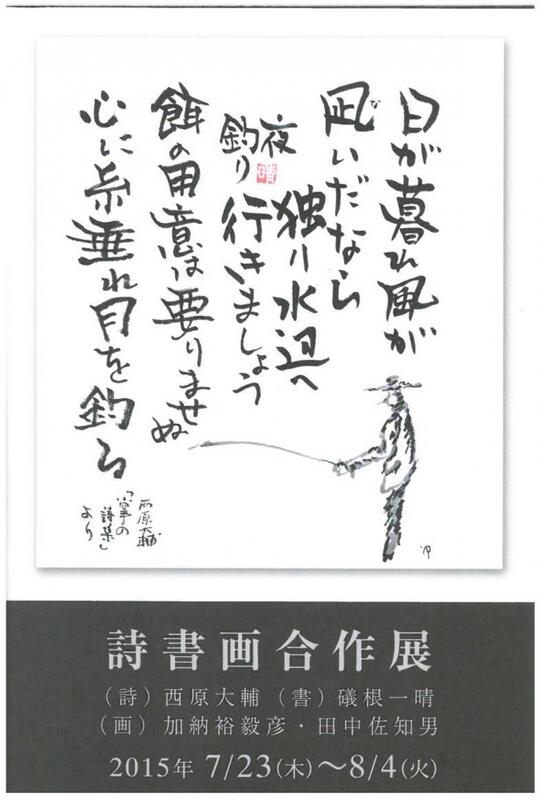 日が暮れ風が
凪いだなら
な
独り水辺へ
夜釣り
行きましょう
晴
餌の用意は要りませぬ
心に糸垂れ月を釣る
西原大輔
「掌の
詩集」
より
詩書画合作展
(詩) 西原大輔 (書) 礒根一晴
(画) 加納裕毅彦・田中佐知男
2015年 7/23(木)~8/4(火)